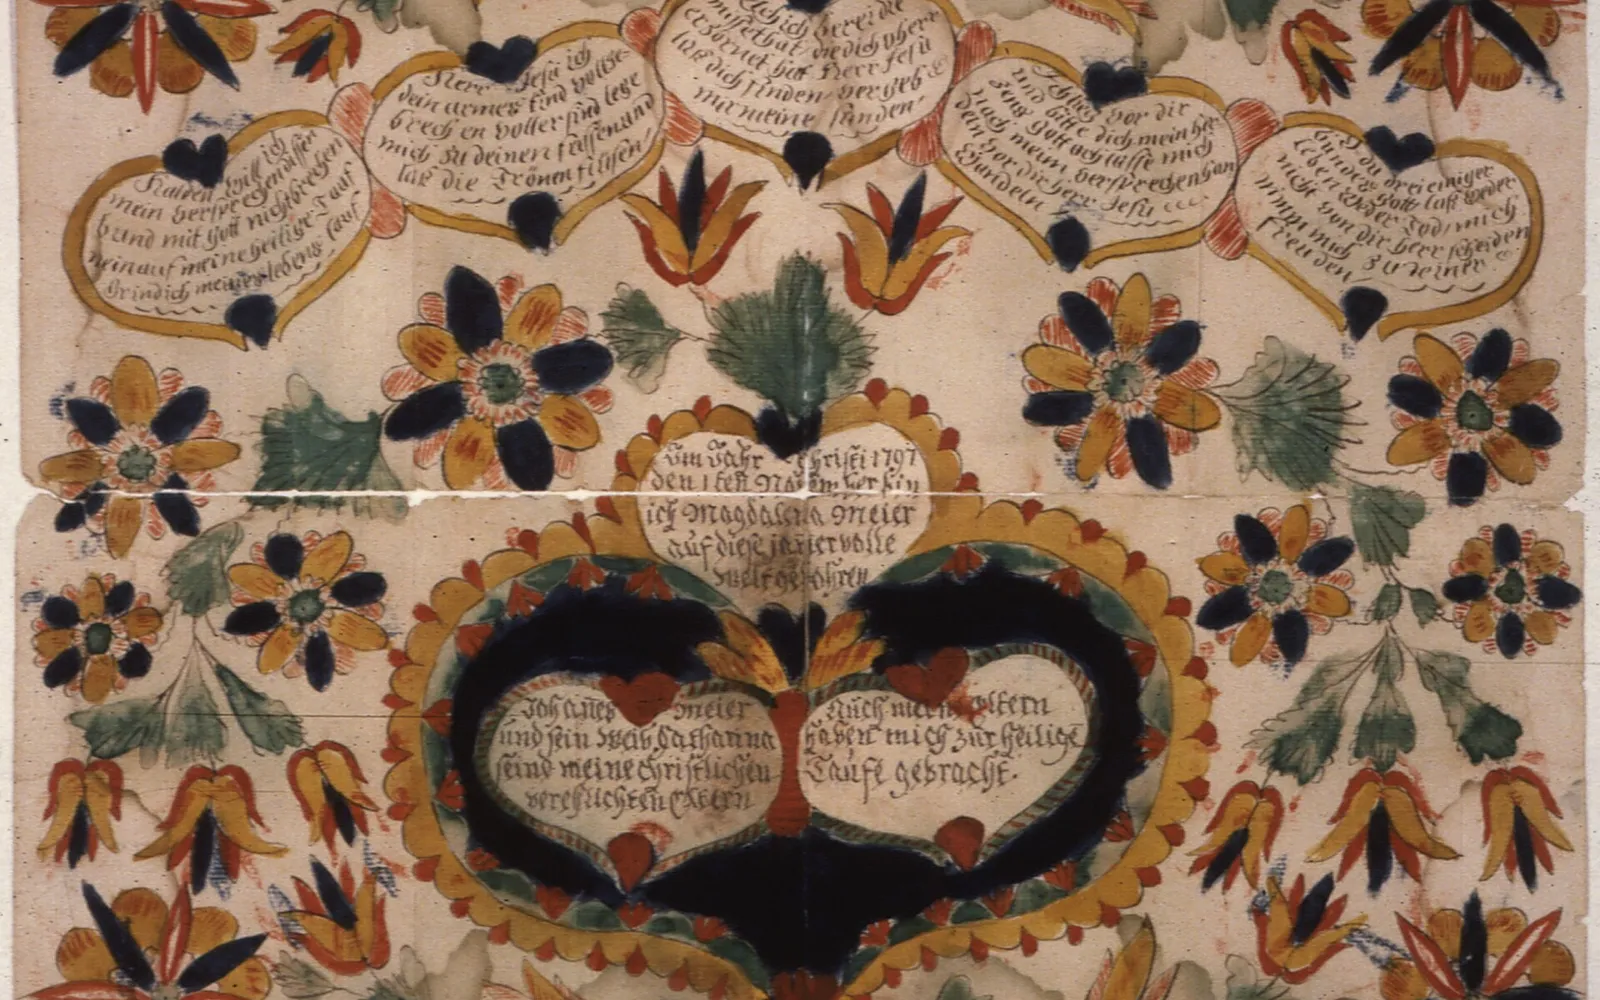 Halden will ich
mein versprechen dissen
bund mit Gott nicht brechen
nein auf meine heilige Tauf
Gründ ich meines lebens lauf
Herr Jesu ich
dein armes kind vollge-
brechen voller sünd lege
mich zu deinen füssen und
laß die Trönen flissen
Ach ich bereu die
missethat, die dich
erzörnet hat Herr Jesu
laß dich finden vergeb
mir meine sünden
Ich vor dir
und bitte dich mein her
zens Gott ach lasse mich
nach meim versprechen han
deln vor dir herr Jesu
Wandeln
du drei einiger
Gott laß weder
leben weder Tod mich
nicht von dir herr scheiden
nimm mich zu deinen
freuden
Im Jahr Christi 1797
den 1ten November bin
ich Magdalena Meier
auf diese jamervolle
Welt gebohren
Johanes Meier
und sein Weib Catharina
seind meine christlichen
verehlichten Eltern
Auch meine Eltern
haben mich zur heilige
Taufe gebracht.